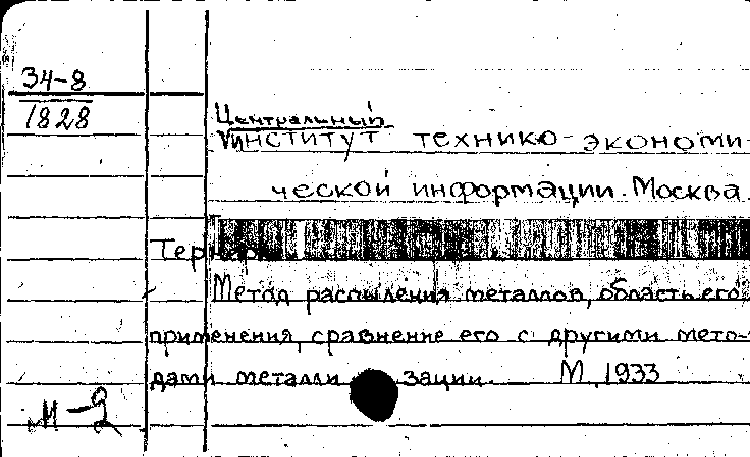 34-8
1828
Центральный
институт технико-экономи-
ческой информации. Москва.
Метод распыления металлов, область его
применения, сравнение его с другими мето-
дами металлизации. М, 1933
М-2